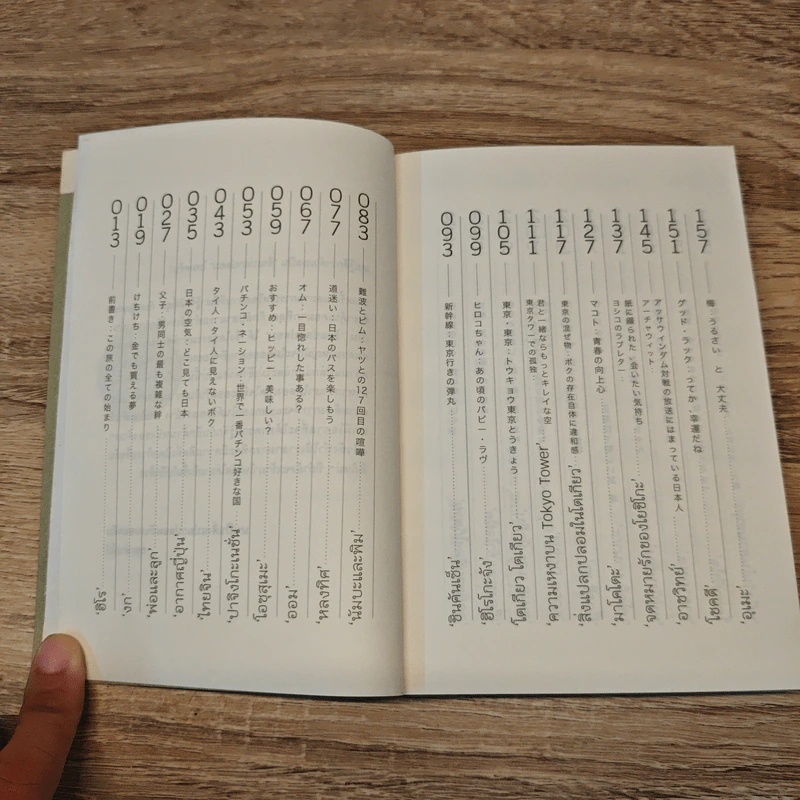 013 前書き:この旅の全ての始まり 'ฮิโร่'
019 けちけち:金でも買える夢 'งก'
027 父子:男同士の最も複雑な絆 'พ่อและลูก'
035 日本の空気:どこ見ても日本 'อากาศญี่ปุ่น'
043 タイ人:タイ人に見えないボク 'ไทยจิน'
053 パチンコ・ネーション:世界で一番パチンコ好きな国 'ปาจิงโกะเนชั่น'
059 おすすめ:ヒッピー・美味しい? 'โอซุซุเมะ'
067 オム:一目惚れした事ある? 'ออม'
077 道迷い:日本のバスを楽しもう 'หลงทิศ'
083 難波とピム:ヤツとの127回目の喧嘩 'นัมบะและพิม'
093 新幹線:東京行きの弾丸 'ชินคันเซ็น'
099 ヒロコちゃん:あの頃のパピー・ラヴ 'ฮิโรโกะจัง'
105 東京・東京:トウキョウ東京とうきょう 'โตเกียว โตเกียว'
111 君と一緒ならもっとキレイな空
東京タワーでの孤独 'ความเหงาบน Tokyo Tower'
117 東京の混ぜ物:ボクの存在自体に違和感 'สิ่งแปลกปลอมในโตเกียว'
127 マコト:青春の向上心 'มาโคโตะ'
137 紙に綴られた、会いたい気持ち
ヨシコのラブレター 'จดหมายรักของโยชิโกะ'
145 アッサウィンダム対戦の放送にはまっている日本人
アーチャウィット 'อาชวิทย์'
151 グッド・ラック:ってか・幸運だね 'โชคดี'
157 梅:うるさい と 大丈夫 'อุเมะ'